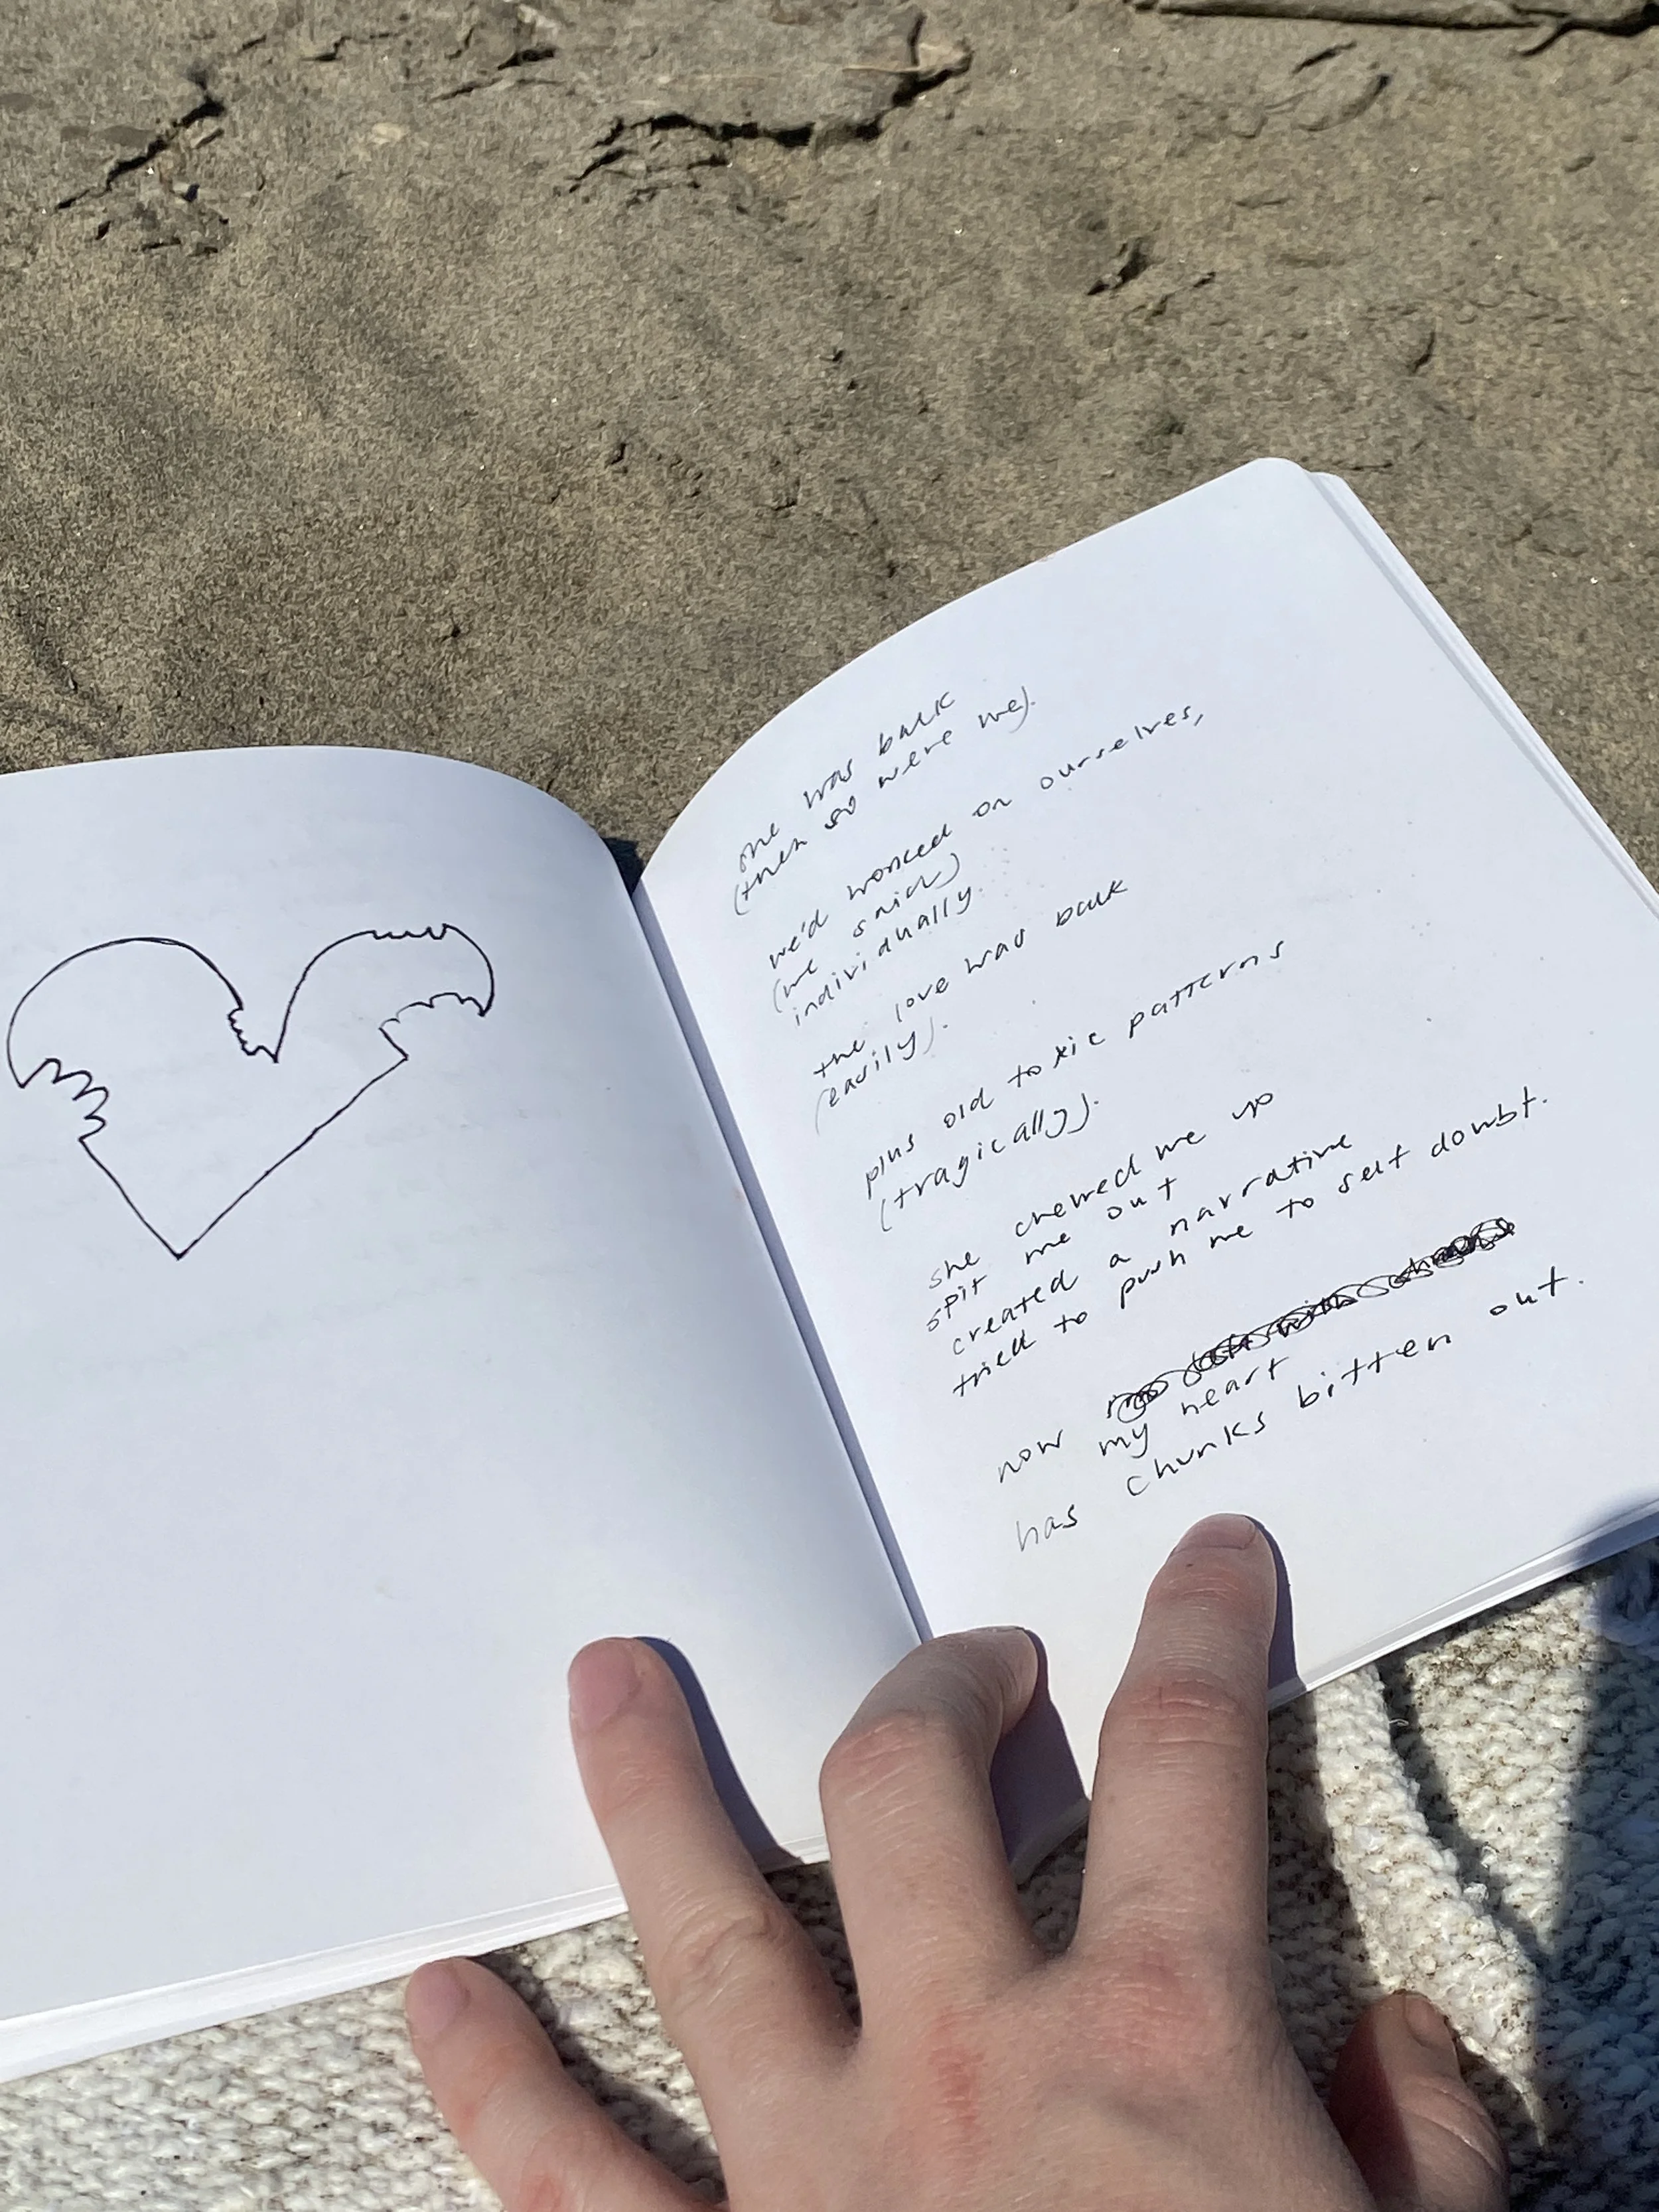 she was back
(then so were we).
we'd worked on ourselves,
(we said)
individually.
the love was back
(easily).
plus old toxic patterns
(tragically).
she chewed me up
spit me out
created a narrative
tried to push me to self doubt.
now
my heart
has chunks bitten out.